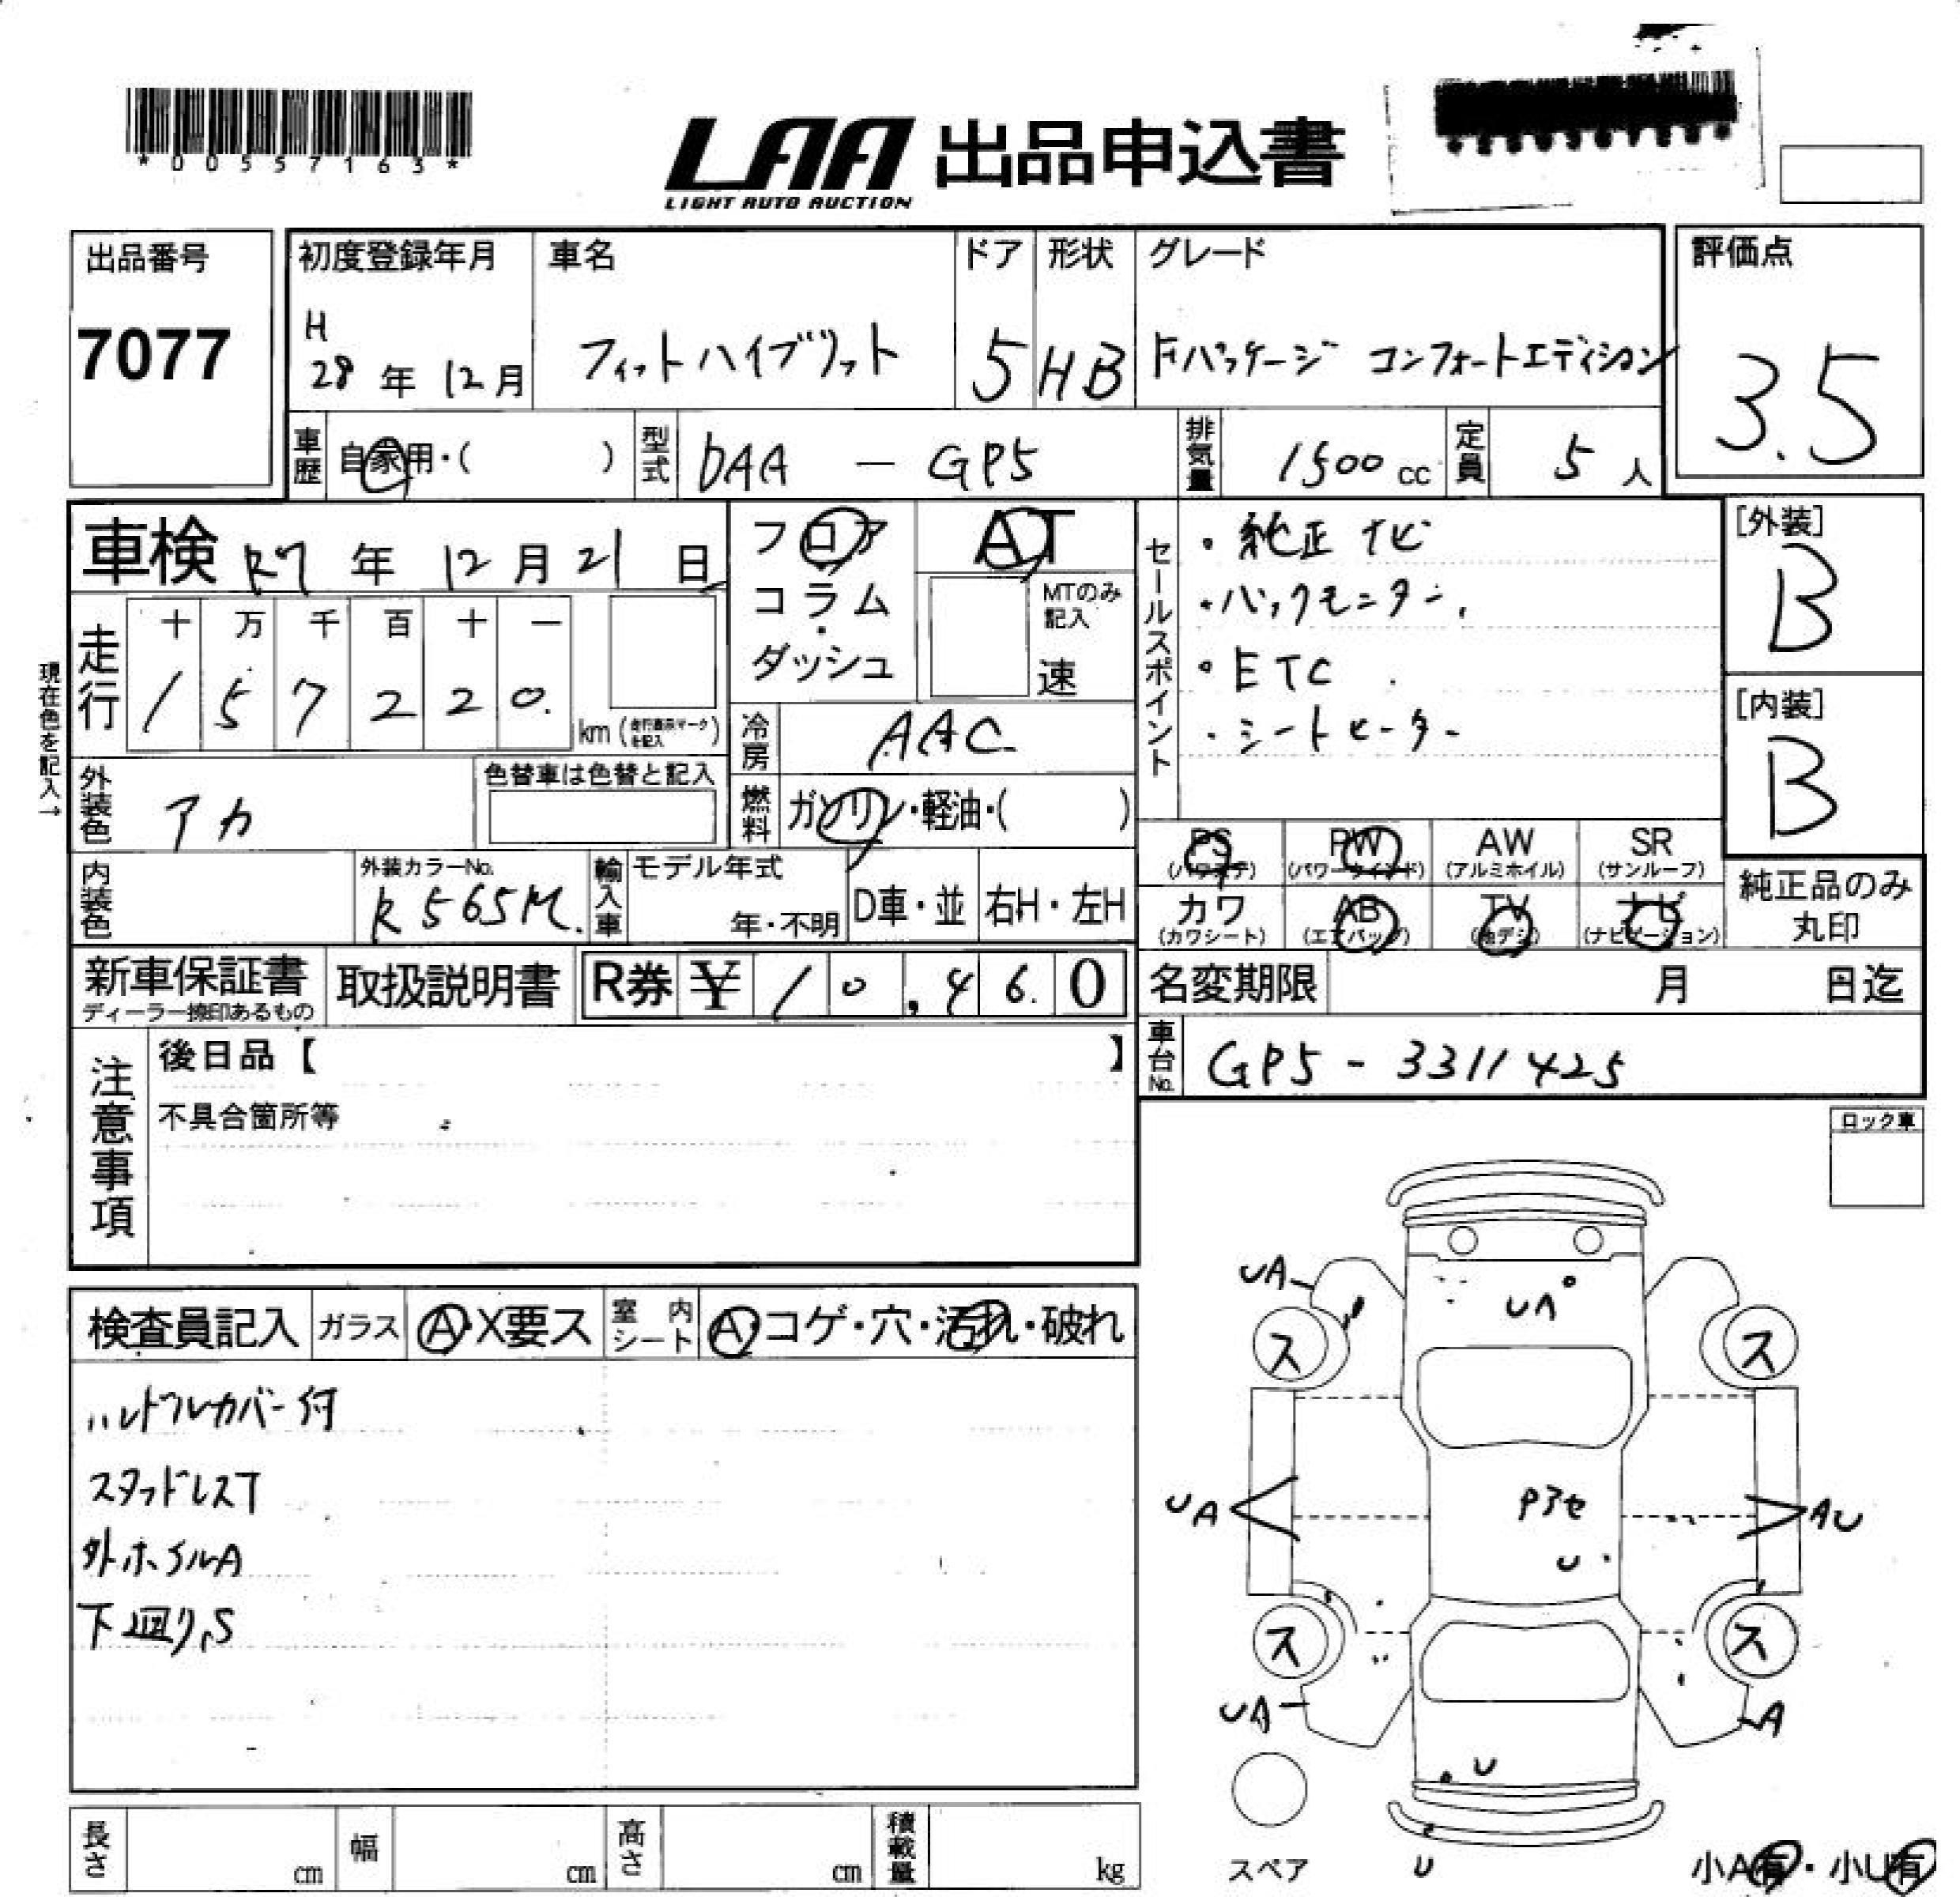 *00557163*
LAA 出品申込書
LIGHT AUTO AUCTION
出品番号
7077
初度登録年月
H
28年 12月
車名
フィットハイブリット
ドア
5
形状
HB
グレード
Fパッケージ コンフォートエディション
評価点
3.5
車歴
自家用・( )
型式
DAA - GP5
排気量
1500 cc
定員
5 人
車検 R7年 12月 21日
現在色を記入→
走行
十 万 千 百 十 一
1 5 7 2 2 0.
km (走行距離表示マークを記入)
外装色
アカ
色替車は色替と記入
内装色
外装カラーNo.
R565M.
フロア
コラム
・
ダッシュ
AT
MTのみ
記入
速
冷房
AAC
燃料
ガソリン・軽油・( )
輸入車
モデル年式
年・不明
D車・並
右H・左H
セールスポイント
・純正ナビ
・バックモニター.
・ETC
・シートヒーター
[外装]
B
[内装]
B
PS
(パワステ)
PW
(パワーウインド)
AW
(アルミホイル)
SR
(サンルーフ)
カワ
(カワシート)
AB
(エアバッグ)
TV
(地デジ)
ナビ
(ナビゲーション)
純正品のみ
丸印
新車保証書
ディーラー捺印あるもの
取扱説明書
R券 ¥ 10,460
名変期限
月 日迄
車台No.
GP5 - 3311425
注意事項
後日品【 】
不具合箇所等
ロック車
検査員記入
ガラス
A・X要ス
室内シート
A・コゲ・穴・汚れ・破れ
ハンドルカバー付
スタッドレスT
外ホイルA
下回り、S
UA
UA
ス
ス
UA
AU
Pアセ
U
ス
ス
UA
A
U
U
スペア
小A有・小U有
長さ
cm
幅
cm
高さ
cm
積載量
kg